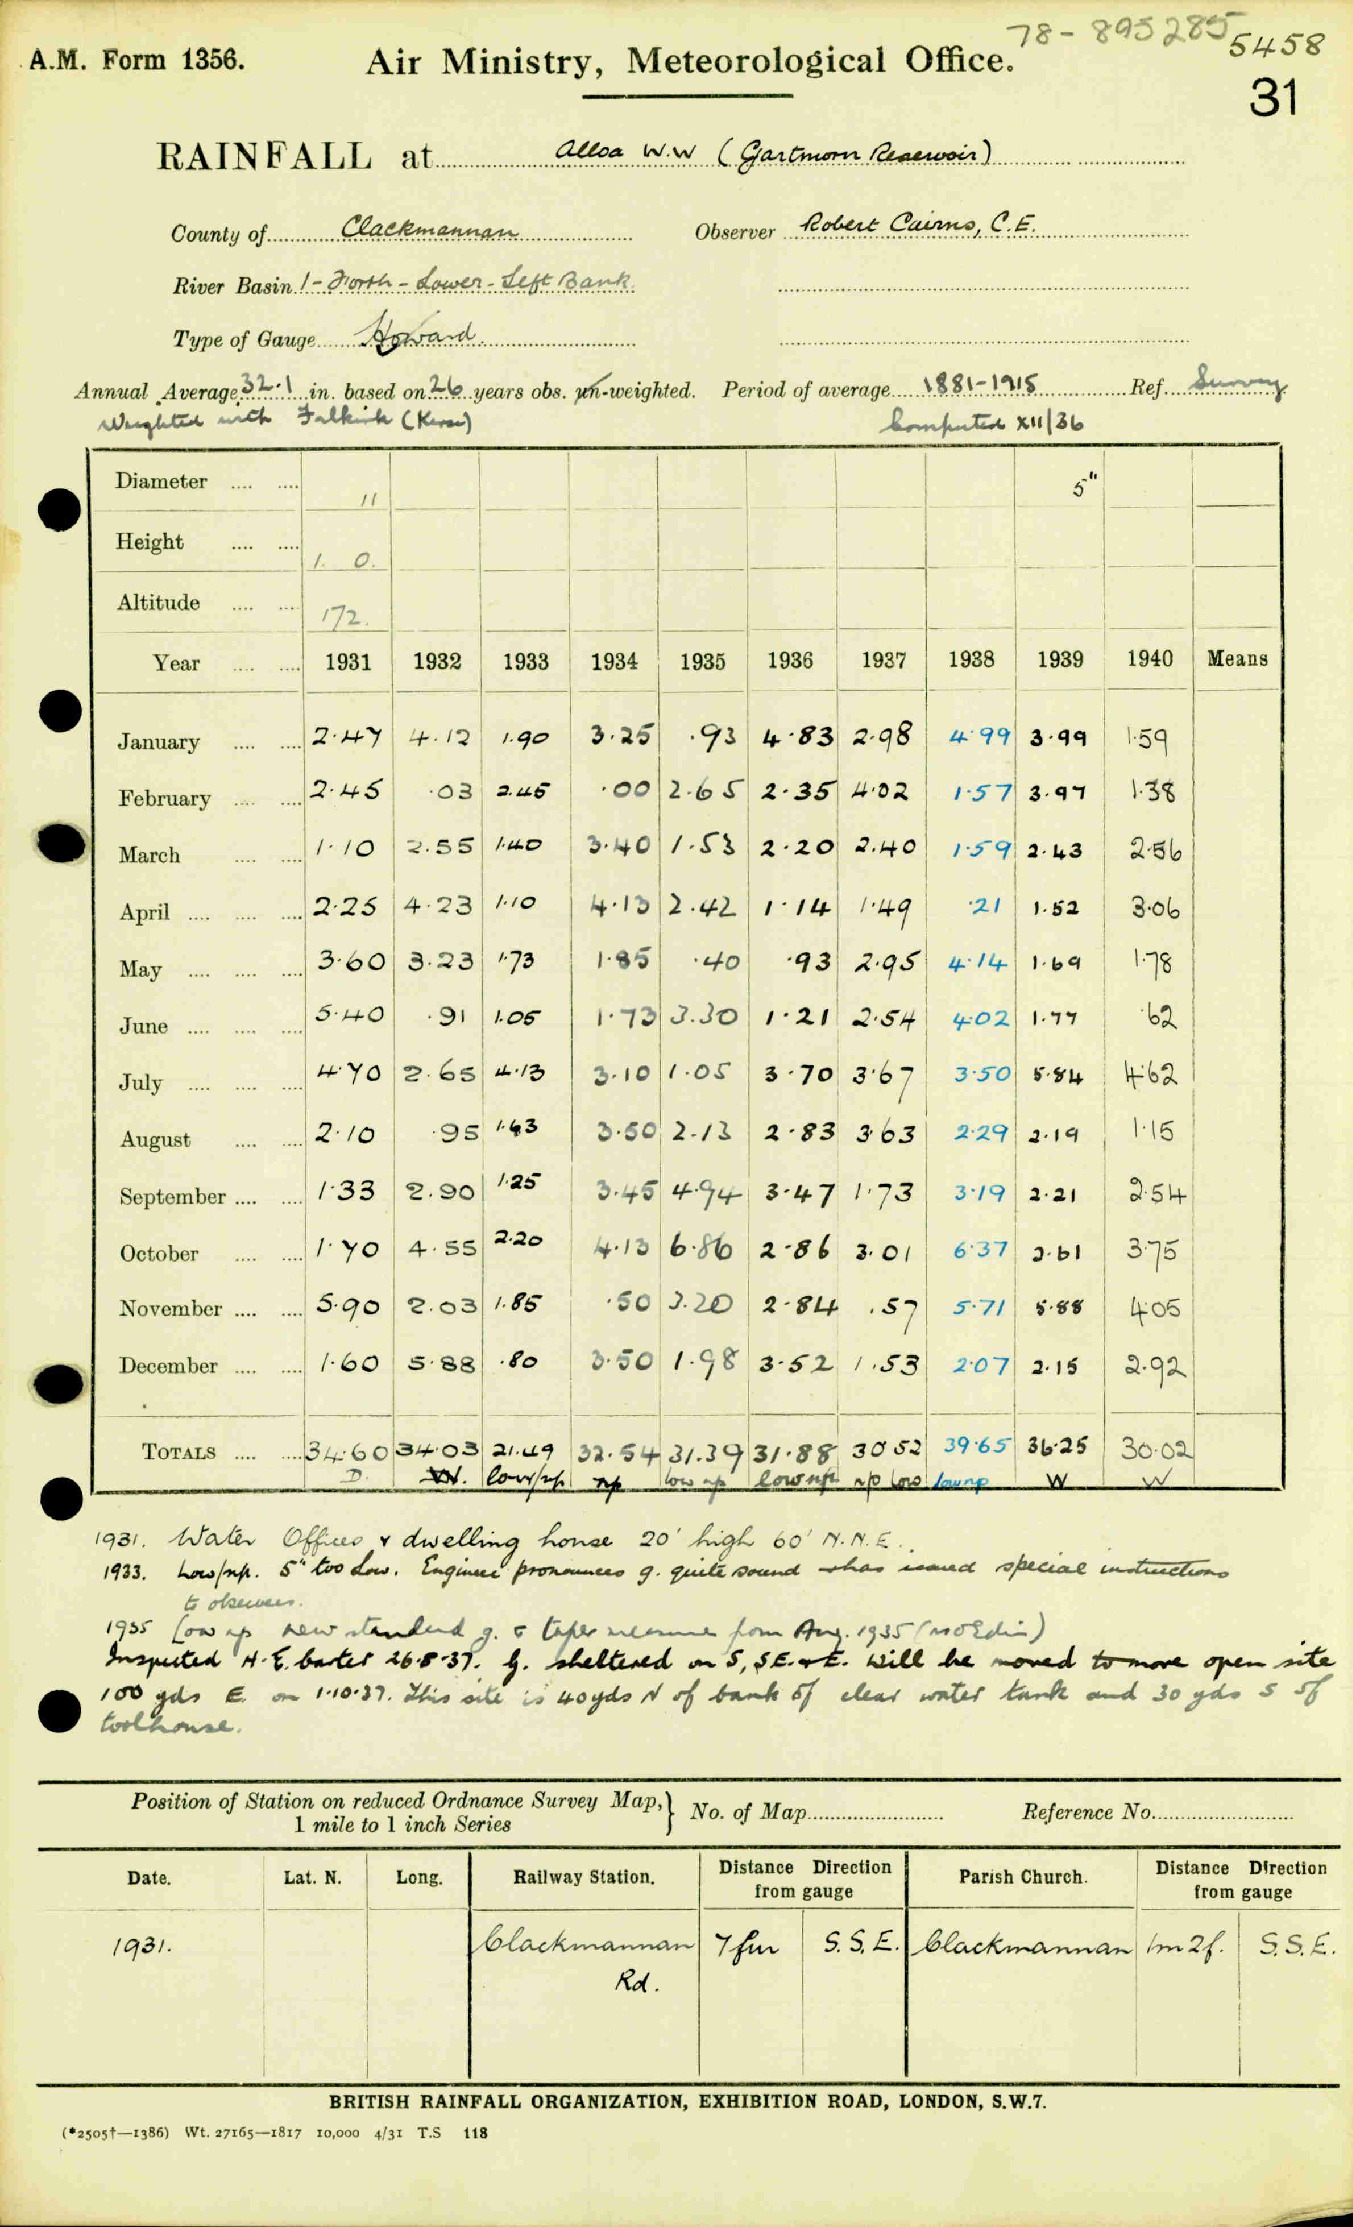 78-895285
5458
A.M. Form 1356.
Air Ministry, Meteorological Office.
31
RAINFALL at Alloa W.W (Gartmorn Reservoir)
County of Clackmannan Observer Robert Cairns, C.E.
River Basin 1 - Forth - Lower - Left Bank
Type of Gauge Howard
Annual Average 32.1 in. based on 26 years obs. un-weighted. Period of average 1881-1915 Ref. Survey
Weighted with Falkirk (Kerse) Computed XII/36
Diameter 11 5"
Height 1. 0.
Altitude 172.
Year 1931 1932 1933 1934 1935 1936 1937 1938 1939 1940 Means
January 2.47 4.12 1.90 3.25 .93 4.83 2.98 4.99 3.99 1.59
February 2.45 .03 2.45 .00 2.65 2.35 4.02 1.57 3.97 1.38
March 1.10 2.55 1.40 3.40 1.53 2.20 2.40 1.59 2.43 2.56
April 2.25 4.23 1.10 4.13 2.42 1.14 1.49 .21 1.52 3.06
May 3.60 3.23 1.73 1.85 .40 .93 2.95 4.14 1.69 1.78
June 5.40 .91 1.05 1.73 3.30 1.21 2.54 4.02 1.77 .62
July 4.70 2.65 4.13 3.10 1.05 3.70 3.67 3.50 5.84 4.62
August 2.10 .95 1.63 3.50 2.13 2.83 3.63 2.29 2.19 1.15
September 1.33 2.90 1.25 3.45 4.94 3.47 1.73 3.19 2.21 2.54
October 1.70 4.55 2.20 4.13 6.86 2.86 3.01 6.37 2.61 3.75
November 5.90 2.03 1.85 .50 3.20 2.84 .57 5.71 5.88 4.05
December 1.60 5.88 .80 3.50 1.98 3.52 1.53 2.07 2.15 2.92
TOTALS 34.60 34.03 21.49 32.54 31.39 31.88 30.52 39.65 36.25 30.02
D. W. low/np np low np low np np low low np W W
1931. Water Offices & dwelling house 20' high 60' N.N.E.
1933. Low/np. 5" too low. Engineer pronounces g. quite sound & has issued special instructions
to observers.
1935 Low np new standard g. & taper measure from Aug. 1935 (M O Edin)
Inspected H.E. Carter 26.8.37. G. sheltered on S, S.E. & E. Will be moved to more open site
100 yds E. on 1.10.37. This site is 40 yds N of bank of clear water tank and 30 yds S of
toolhouse.
Position of Station on reduced Ordnance Survey Map, } No. of Map Reference No.
1 mile to 1 inch Series
Date. Lat. N. Long. Railway Station. Distance Direction from gauge Parish Church. Distance Direction from gauge
1931. Clackmannan 7 fur S.S.E. Clackmannan 1m 2f. S.S.E.
Rd.
BRITISH RAINFALL ORGANIZATION, EXHIBITION ROAD, LONDON, S.W.7.
(*2505†—1386) Wt. 27165—1817 10,000 4/31 T.S 118